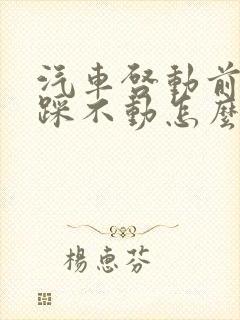 汽車啓動前
踩不動怎麼
楊惠芬